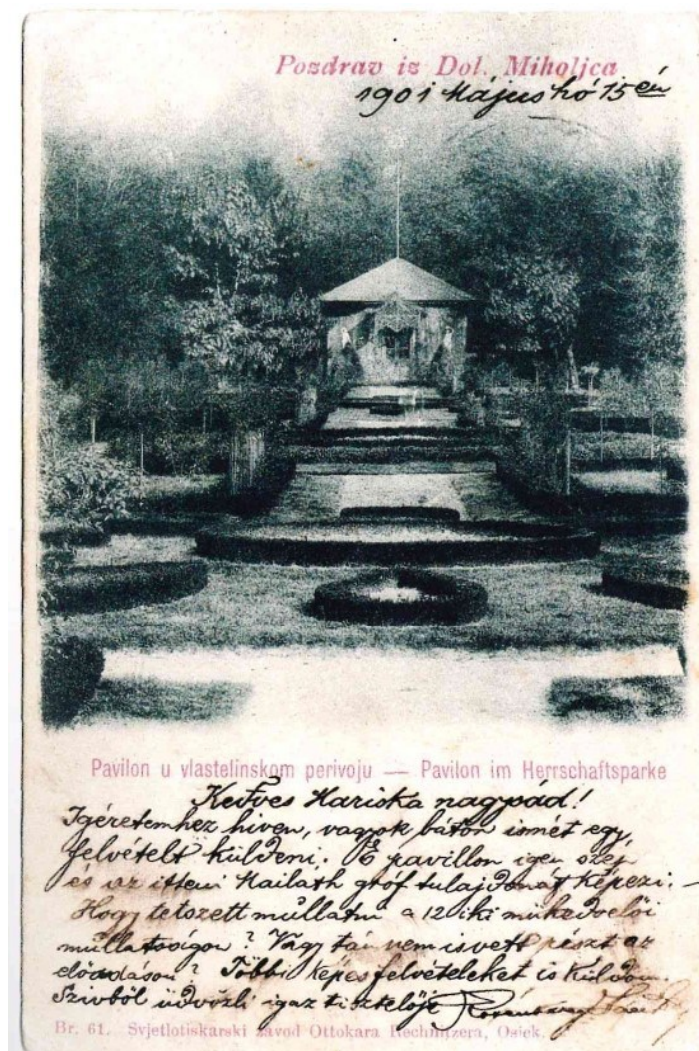 Pozdrav iz Dol. Miholjca
1901 Májushó 15 én
Pavilon u vlastelinskom perivoju — Pavilon im Herrschaftsparke
Kedves Mariska nagysád!
Igéretemhez hiven, vagyok bátor ismét egy
felvételt küldeni. E pavillon igen szép
és az itteni Mailáth gróf tulajdonát képezi. —
Hogy tetszett mullatni a 12 iki mükedvelői
mullatságon? Vagy tán nem is vett részt az
előadáson? Többi képes felvételeket is küldöm.
Szivből üdvözli igaz tisztelője
Br. 61. Svjetlotiskarski zavod Ottokara Rechnitzera, Osiek.